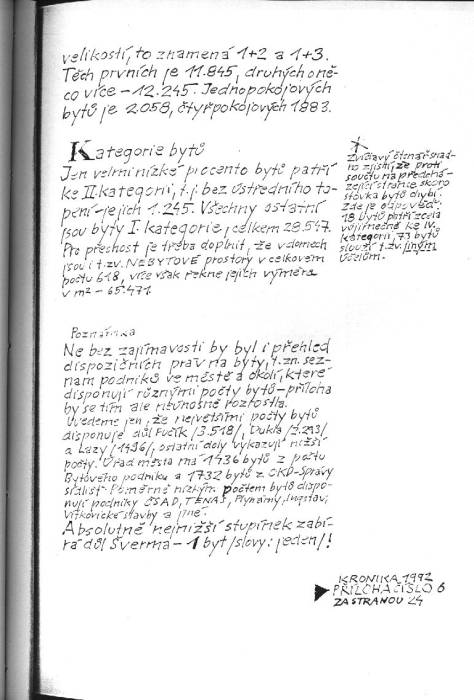 velikostí, to znamená 1+2 a 1+3.
Těch prvních je 11.845, druhých o ně-
co více – 12.245. Jednopokojových
bytů je 2.058, čtyřpokojových 1883.
Kategorie bytů
Jen velmi nízké procento bytů patří
ke II. kategorii, t.j. bez ústředního to-
pení – jejich 1.245. Všechny ostatní
jsou byty I. kategorie, celkem 28.547.
Pro přesnost je třeba doplnit, že v domech
jsou i t.zv. NEBYTOVÉ prostory v celkovém
počtu 618, více však řekne jejich výměra
v m² – 65.471.
*
Zvídavý čtenář snad-
no zjistí, že proti
součtu na předchá-
zející straně skoro
stovka bytů chybí.
Zde je odpověď:
18 bytů patří zcela
výjimečně ke IV.
kategorii, 73 bytů
slouží t.zv. jiným
účelům.
Poznámka
Ne bez zajímavosti by byl i přehled
dispozičních práv na byty, t.zn. sez-
nam podniků ve městě a okolí, které
disponují různými počty bytů – příloha
by se tím ale neúnosně rozrostla.
Uvedeme jen, že největšími počty bytů
disponuje důl Fučík /3.518/, Dukla /2.213/
a Lazy /1496/, ostatní doly vykazují nižší
počty. Úřad města má 1436 bytů z počtu
Bytového podniku a 1732 bytů z OKD-Správy
sídlišť. Poměrně nízkým počtem bytů dispo-
nují podniky ČSAD, TENAS, Plynárny, Ingstav,
Vítkovické stavby a jiné.
Absolutně nejnižší stupínek zabí-
rá důl Šverma – 1 byt /slovy: jeden/!
KRONIKA 1992
PŘÍLOHA ČÍSLO 6
ZA STRANOU 24